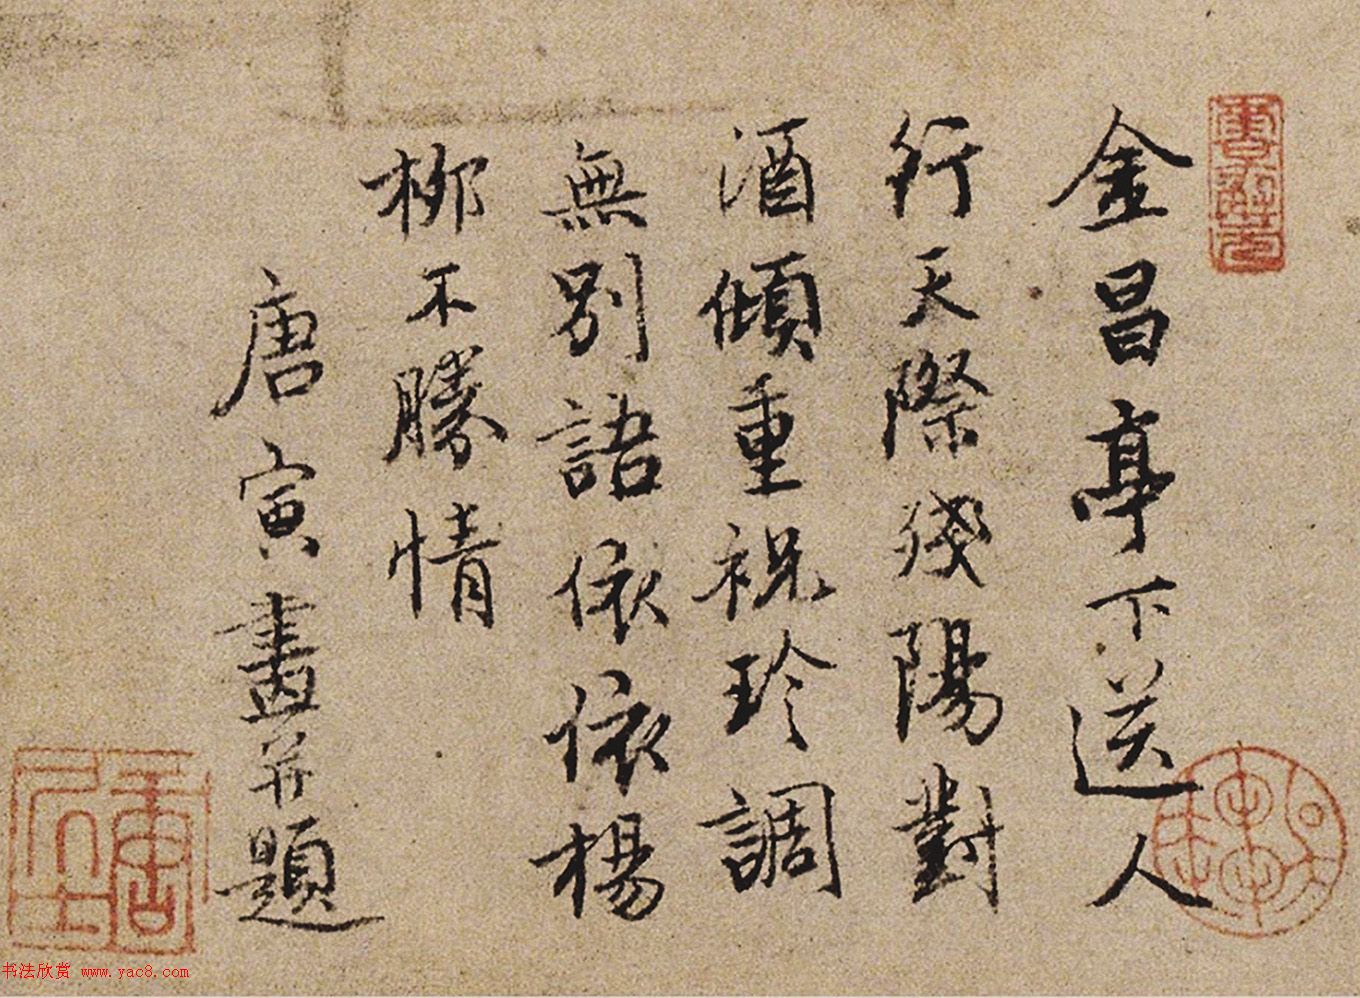 金昌亭下送人
行天際殘陽對
酒傾重祝珍調
無別語依依楊
柳不勝情
唐寅畫并題
书法欣赏 www.yac8.com